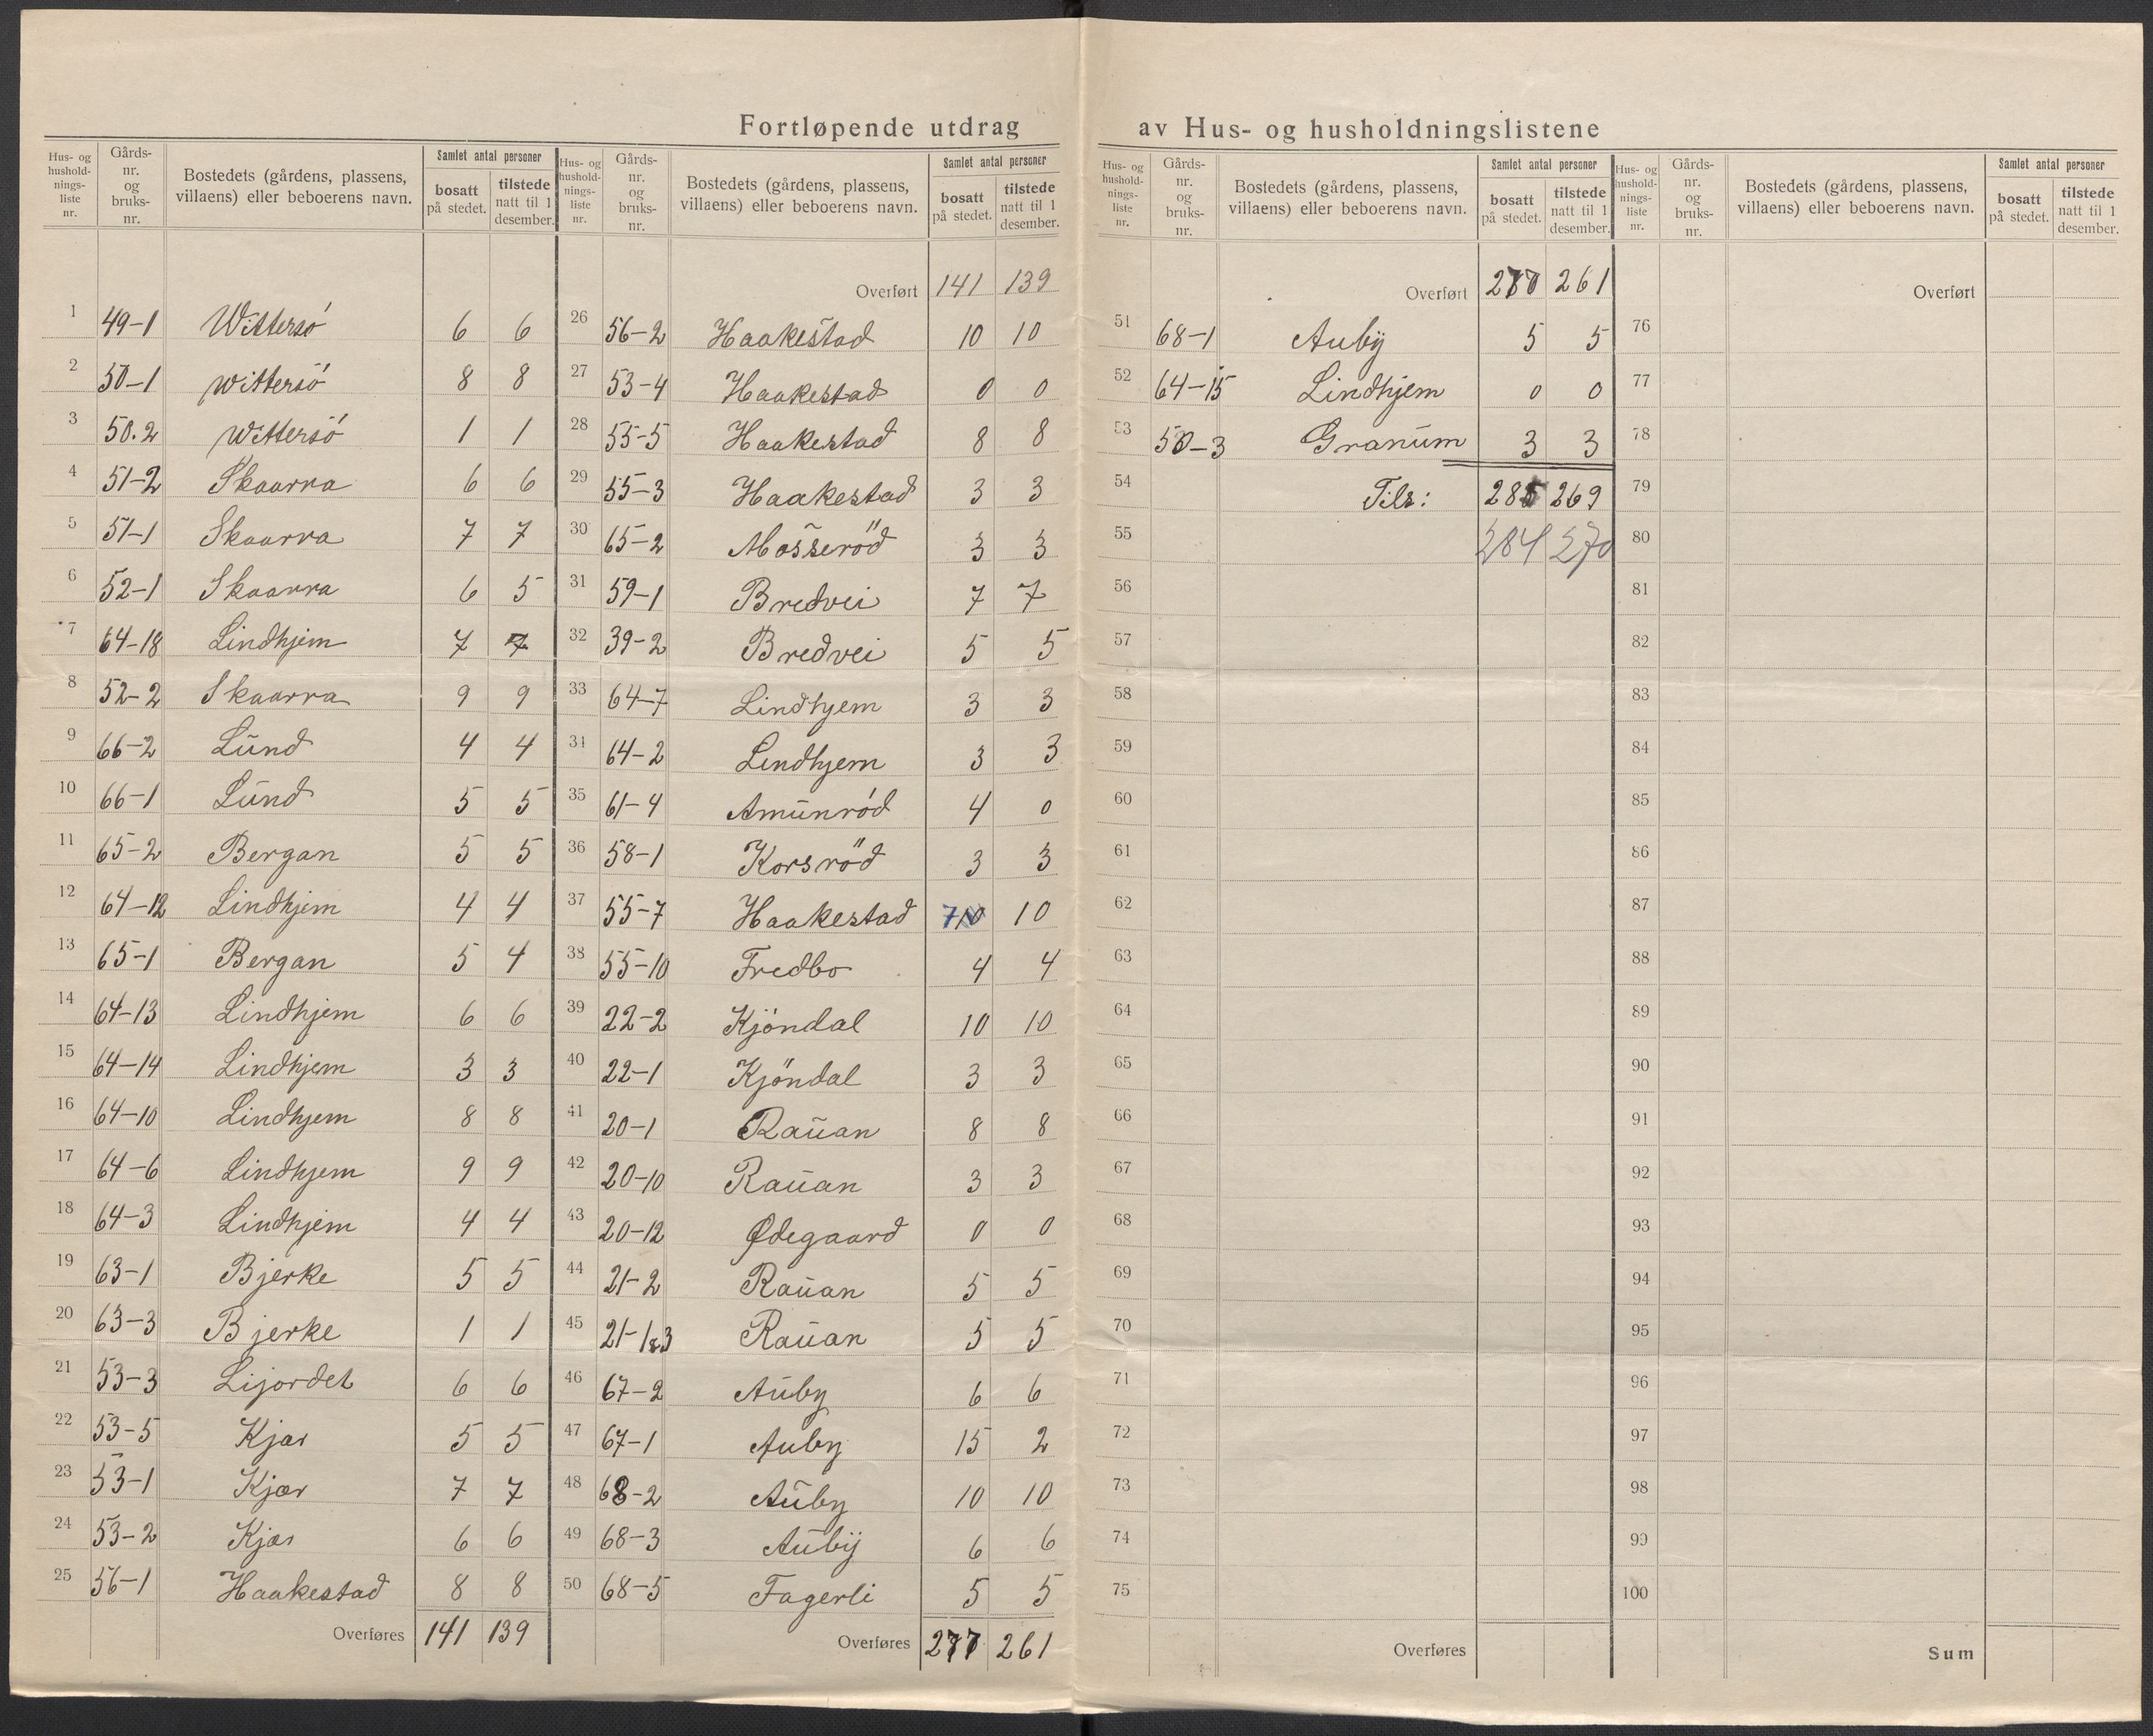 Fortløpende utdrag av Hus- og husholdningslistene
Hus- og hushold-nings-liste nr. Gårds-nr. og bruks-nr. Bostedets (gårdens, plassens, villaens) eller beboerens navn. Samlet antal personer bosatt på stedet. tilstede natt til 1 desember.
1 49-1 Wittersó 6 6
2 50-1 Wittersó 8 8
3 50.2 Wittersó 1 1
4 51-2 Skaarra 6 6
5 51-1 Skaarra 7 7
6 52-1 Skaarra 6 5
7 64-18 Lindhjem 7 7
8 52-2 Skaarra 9 9
9 66-2 Lund 4 4
10 66-1 Lund 5 5
11 65-2 Bergan 5 5
12 64-12 Lindhjem 4 4
13 65-1 Bergan 5 4
14 64-13 Lindhjem 6 6
15 64-14 Lindhjem 3 3
16 64-10 Lindhjem 8 8
17 64-6 Lindhjem 9 9
18 64-3 Lindhjem 4 4
19 63-1 Bjerke 5 5
20 63-3 Bjerke 1 1
21 53-3 Lijordet 6 6
22 53-5 Kjær 5 5
23 53-1 Kjær 7 7
24 53-2 Kjær 6 6
25 56-1 Haakestad 8 8
Overføres 141 139
Hus- og hushold-nings-liste nr. Gårds-nr. og bruks-nr. Bostedets (gårdens, plassens, villaens) eller beboerens navn. Samlet antal personer bosatt på stedet. tilstede natt til 1 desember.
Overført 141 139
26 56-2 Haakestad 10 10
27 53-4 Haakestad 0 0
28 55-5 Haakestad 8 8
29 55-3 Haakestad 3 3
30 65-2 Mosseröd 3 3
31 59-1 Bredvei 7 7
32 39-2 Bredvei 5 5
33 64-7 Lindhjem 3 3
34 64-2 Lindhjem 3 3
35 61-4 Amunród 4 0
36 58-1 Korsröd 3 3
37 55-7 Haakestad 7 10 10
38 55-10 Fredbo 4 4
39 22-2 Kjöndal 10 10
40 22-1 Kjöndal 3 3
41 20-1 Rauan 8 8
42 20-10 Rauan 3 3
43 20-12 Ødegaard 0 0
44 21-2 Rauan 5 5
45 21-1&3 Rauan 5 5
46 67-2 Auby 6 6
47 67-1 Auby 15 2
48 68-2 Auby 10 10
49 68-3 Auby 6 6
50 68-5 Fagerli 5 5
Overføres 277 261
Hus- og hushold-nings-liste nr. Gårds-nr. og bruks-nr. Bostedets (gårdens, plassens, villaens) eller beboerens navn. Samlet antal personer bosatt på stedet. tilstede natt til 1 desember.
Overført 277 261
51 68-1 Auby 5 5
52 64-15 Lindhjem 0 0
53 50-3 Granum 3 3
54 Tils: 285 269
55 284 270
56
57
58
59
60
61
62
63
64
65
66
67
68
69
70
71
72
73
74
75
Overføres
Hus- og hushold-nings-liste nr. Gårds-nr. og bruks-nr. Bostedets (gårdens, plassens, villaens) eller beboerens navn. Samlet antal personer bosatt på stedet. tilstede natt til 1 desember.
Overført
76
77
78
79
80
81
82
83
84
85
86
87
88
89
90
91
92
93
94
95
96
97
98
99
100
Sum